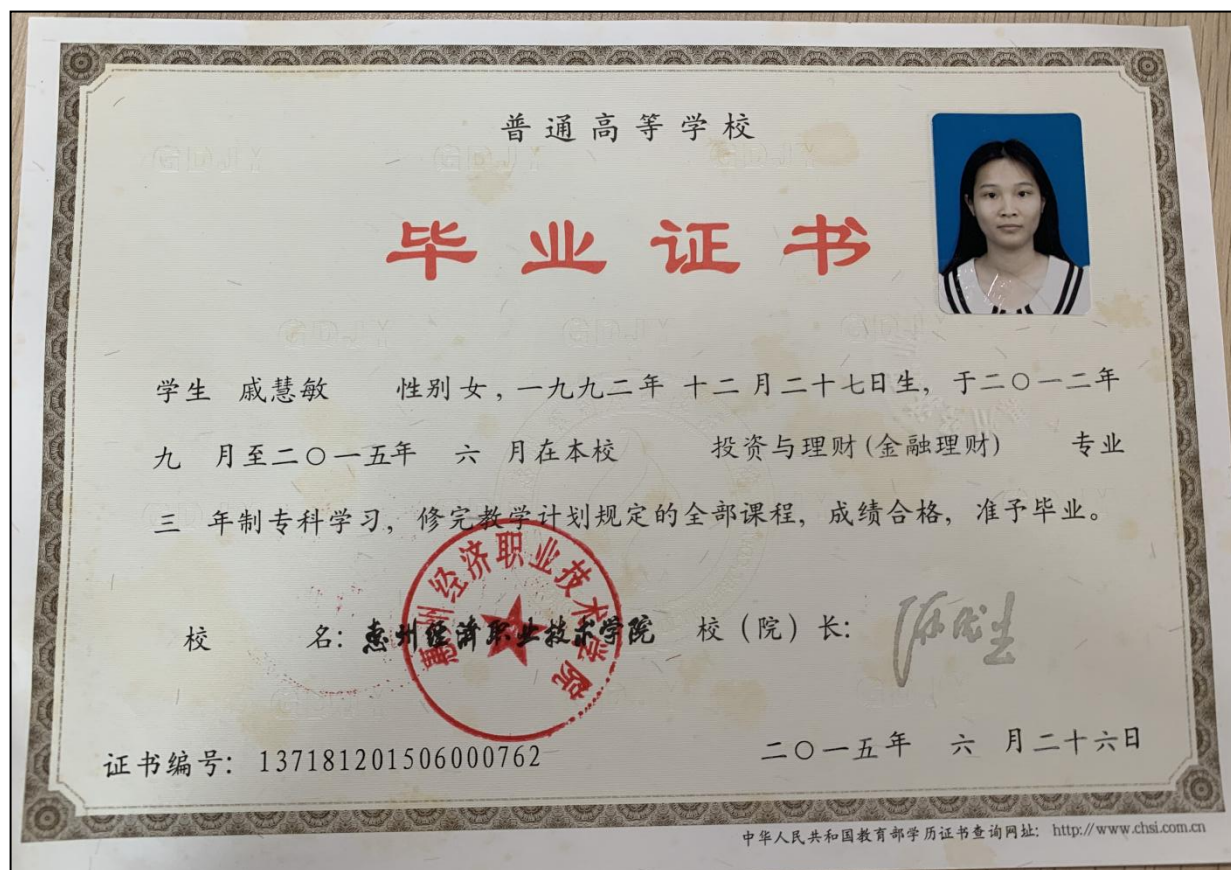 普通高等学校
毕业证书
学生 戚慧敏 性别女，一九九二年 十二月二十七日生，于二〇一二年
九 月至二〇一五年 六 月在本校 投资与理财(金融理财) 专业
三 年制专科学习，修完教学计划规定的全部课程，成绩合格，准予毕业。
校 名：惠州经济职业技术学院 校（院）长：
惠州经济职业技术学院
证书编号：137181201506000762 二〇一五年 六 月二十六日
中华人民共和国教育部学历证书查询网址：http://www.chsi.com.cn